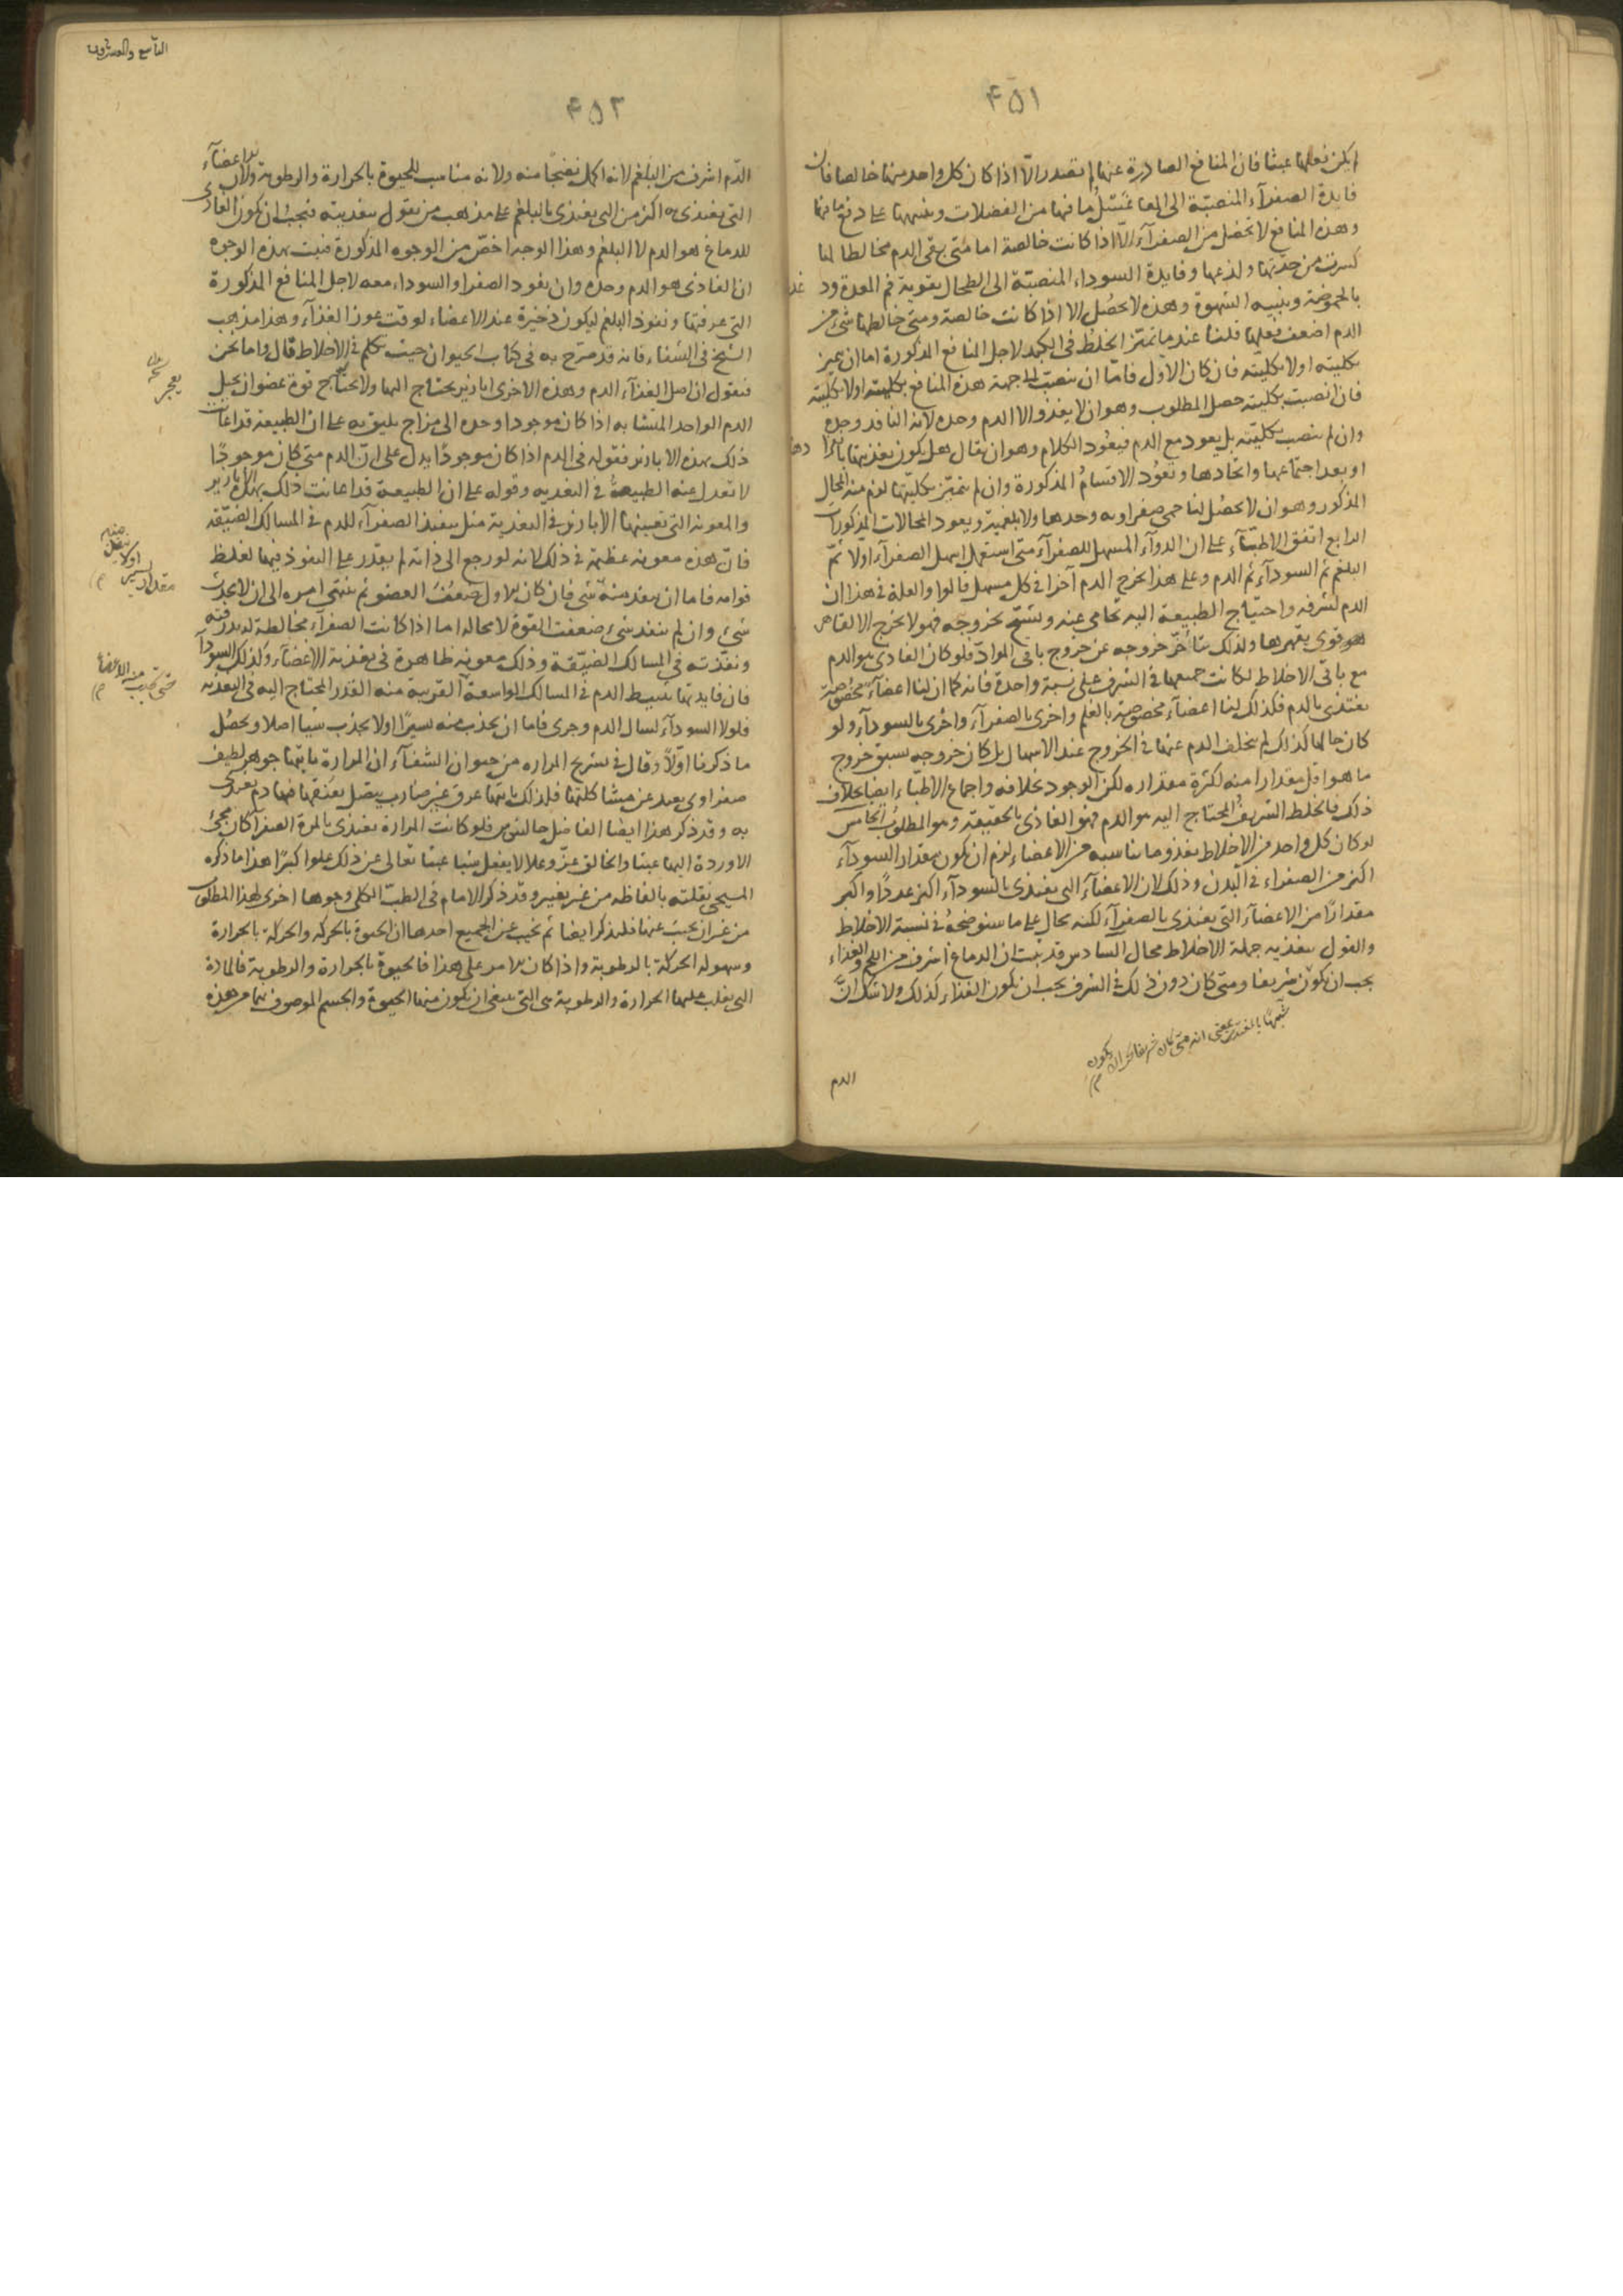 ۴۵۱
لم يكن فعلها عبثا فان المنافع الصادرة عنها لم تقدر الّا اذا كان كل واحد منها خالصا فان
فايدة الصفرآء المنصبّة الى المعا غسّل ما فيها من الفضلات وتنبيهها على دفع ما فيها
وهذه المنافع لا تحصُل من الصفرآء الّا اذا كانت خالصة اما متى بقى الدم مخالطا لها
كسرت من حدّتها ولذعها وفايدة السوداء المنصبّة الى الطحال تقوية فم المعدة ود
بالحموضة وتنبيه الشهوة وهذه لا تحصُل الا اذا كانت خالصة ومتى خالطها شئ من
الدم اضعف فعلها قلنا عند ما تميّز الخلطُ فى الكبد لاجل المنافع المذكورة اما ان يميز
بكليته اولا بكليته فان كان الاوّل فامّا ان تنصبّ الى جهة هذه المنافع بكليته اولا بكليته
فان انصبت بكليته حصل المطلوب وهو ان لا يغذو الا الدم وحده لانه النافذ وحده
وان لم تنصب بكليّته بل يعود مع الدم فيعُود الكلام وهو ان يقال هل يكون تغذيتها بانفرا دها
او بعد اجتماعها واتحادها وتعوُد الاقسامُ المذكورة وان لم تتميّز بكليتها لزم منه المحال
المذكور وهو ان لا تحصُل لنا حمى صفراويه وحدها ولا بلغمية ويعود المحالات المذكورات
الرابع اتفق الاطبّآء على ان الدوآء المسهل للصفرآء متى استعمل اسهل الصفرآء اولا ثمّ
البلغم ثم السودآء ثم الدم وعلى هذا يخرج الدم آخرا فى كل مسهل قالوا والعلة فى هذا ان
الدم لشرفه واحتياج الطبيعة اليه تحامى عنه وتشحّ بخروجه فهو لا يخرج الا لقاهر
هو قوى يقهرها ولذلك يتأخّر خروجه عن خروج باقى الموادّ فلو كان الغاذى هو الدم
مع باقى الاخلاط لكانت جميعها فى الشرف على نسبة واحدة فانه كما ان لنا اعضآء مخصُوصة
تغتذى بالدم فكذلك لنا اعضآء مخصوصة بالبلغم واخرى بالصفرآء واخرى بالسودآء ولو
كان حالها كذلك لم يتخلف الدم عنها فى الخروج عند الاسهال بل كان خروجه يسبق خروج
ما هو اقل مقدارا منه لكثرة مقداره لكن الوجود بخلافه واجماع الاطبّاء ايضا بخلاف
ذلك فالخلط الشريفُ المحتاج اليه هو الدم فهو الغاذى بالحقيقة وهو المطلوُب الخامس
لو كان كل واحد من الاخلاط يغذو ما يناسبه من الاعضاء لزم ان يكون مقدار السودآء
اكثر من الصفراء فى البدن وذلك لان الاعضآء التى تغتذى بالسودآء اكثر عددًا واكبر
مقدارًا من الاعضآء التى تغتذى بالصفرآء لكنه محال على ما سنوضحهُ فى نسبة الاخلاط
والقول بتغذيه جملة الاخلاط محال السادس قد ثبت ان الدماغ اشرف من اللحم والغذاء
يجب ان يكون شريفا ومتى كان دون ذلك فى الشرف يجب ان يكون الغذاء كذلك ولا شك انّ
شبيهًا بالمغتذى بمعنى انه متى كان شريفا يجب ان يكون
الدم
التاسع والعشرون
۴۵۲
الدّم اشرف من البلغم لانه اكمل نضجًا منه ولانه مناسب للحيوة بالحرارة والرطوبة ولان الاعضآء
التى تغتذى به اكثر من التى تغتذى بالبلغم على مذهب من يقول بتغذيته فيجبُ ان يكون الغاذى
للدماغ هو الدم لا البلغم وهذا الوجه اخصّ من الوجوه المذكورة فثبت بهذه الوجوه
ان الغاذى هو الدم وحده وان نفوذ الصفرا والسوداء معه لاجل المنافع المذكورة
التى عرفتها ونفوذ البلغم ليكون ذخيرة عند الاعضاء لوقت عوز الغذآء وهذا مذهب
الشيخ فى الشفاء فانه قد صرّح به فى كتاب الحيوان حيث تكلم فى الاخلاط قال واما نحن
فنقول ان اصل الغذآء الدم وهذه الاخرى ابازير يحتاج اليها ولا يحتاج قوة عضو ان يحيل
الدم الواحد المتشابه اذا كان موجودا وحده الى مزاج يليق به على ان الطبيعة قد اعانت
ذلك بهذه الابازير فقوله فى الدم اذا كان موجودًا يدل على انّ الدم متى كان موجودًا
لا تعدل عنه الطبيعةُ فى التغذيه وقوله على ان الطبيعة قد اعانت ذلك بهذه الابازير
والمعونه التى تعينها الابازير فى التغذية مثل تنفيذ الصفرآء للدم فى المسالك الضيّقة
فانّ هذه معونه عظيمة فى ذلك لانه لو رجع الى ذاته لم يقدر على النفوذ فيها لغلظ
قوامه فاما ان ينفد منه شئ فان كان الاول ضعُفَ العضو ثم ينتهى امره الى ان لا يجذب
شئ وان لم ينفد شئ ضعفت القوة لا محاله اما اذا كانت الصفرآء مخالطة له بذرقته
ونفّذته فى المسالك الضيّقة وذلك معونه ظاهرة فى تغذية الاعضآء ولذلك السودآ
فان فايدتها تثبيط الدم فى المسالك الواسعة القريبة منه القدر المحتاج اليه فى التغذيه
فلولا السودآء لسال الدم وجرى فاما ان يجذب منه يسيرًا اولا يجذب شيا اصلا ويحصُل
ما ذكرنا اوّلاً وقال فى تشريح المراره من حيوان الشفآء ان المرارة ياتيها جوهر لطيف
صفراوى يبعد عن مشاكلتها فلذلك ياتيها عرق غير ضارب يتصل بعُنقها فيها دم تغتذى
به وقد ذكر هذا ايضا الفاضل جالينوس فلو كانت المرارة تغتذى بالمرة الصفرا كان مجئ
الاوردة اليها عبثا والخالق عزّ وعلا لا يفعل شيا عبثا تعالى عن ذلك علوا كبيرًا هذا ما ذكره
المسيحى نقلته بالفاظه من غير تغيير وقد ذكر الامام فى الطب الكلى وجوها اخرى لهذا المطلوب
من غير ان يجيب عنها فلنذكر ايضا ثم نجيب عن الجميع احدها ان الحيوة بالحركه والحركة بالحرارة
وسهولة الحركة بالرطوبة واذا كان الامر على هذا فالحيوة بالحرارة والرطوبة فالمادة
التى يغلب عليها الحرارة والرطوبة هى التى ينبغى ان يكون منها الحيوة والجسم الموصوف بهما من هذه